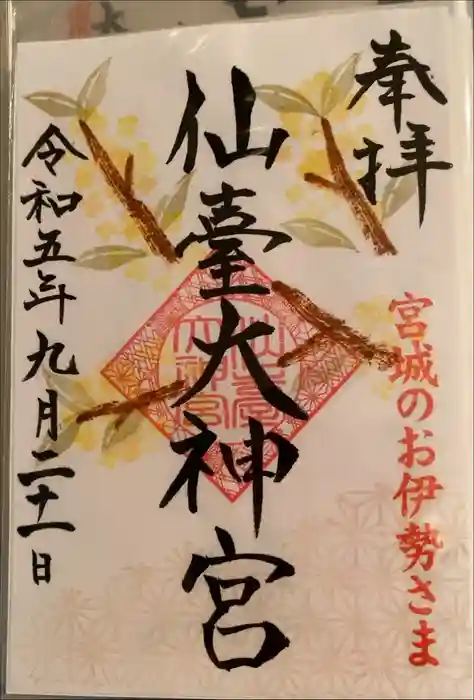 奉拝
宮城のお伊勢さま
仙臺大神宮
令和五年九月二十一日